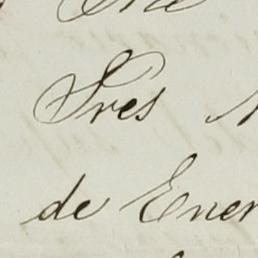 Tres
de Ener